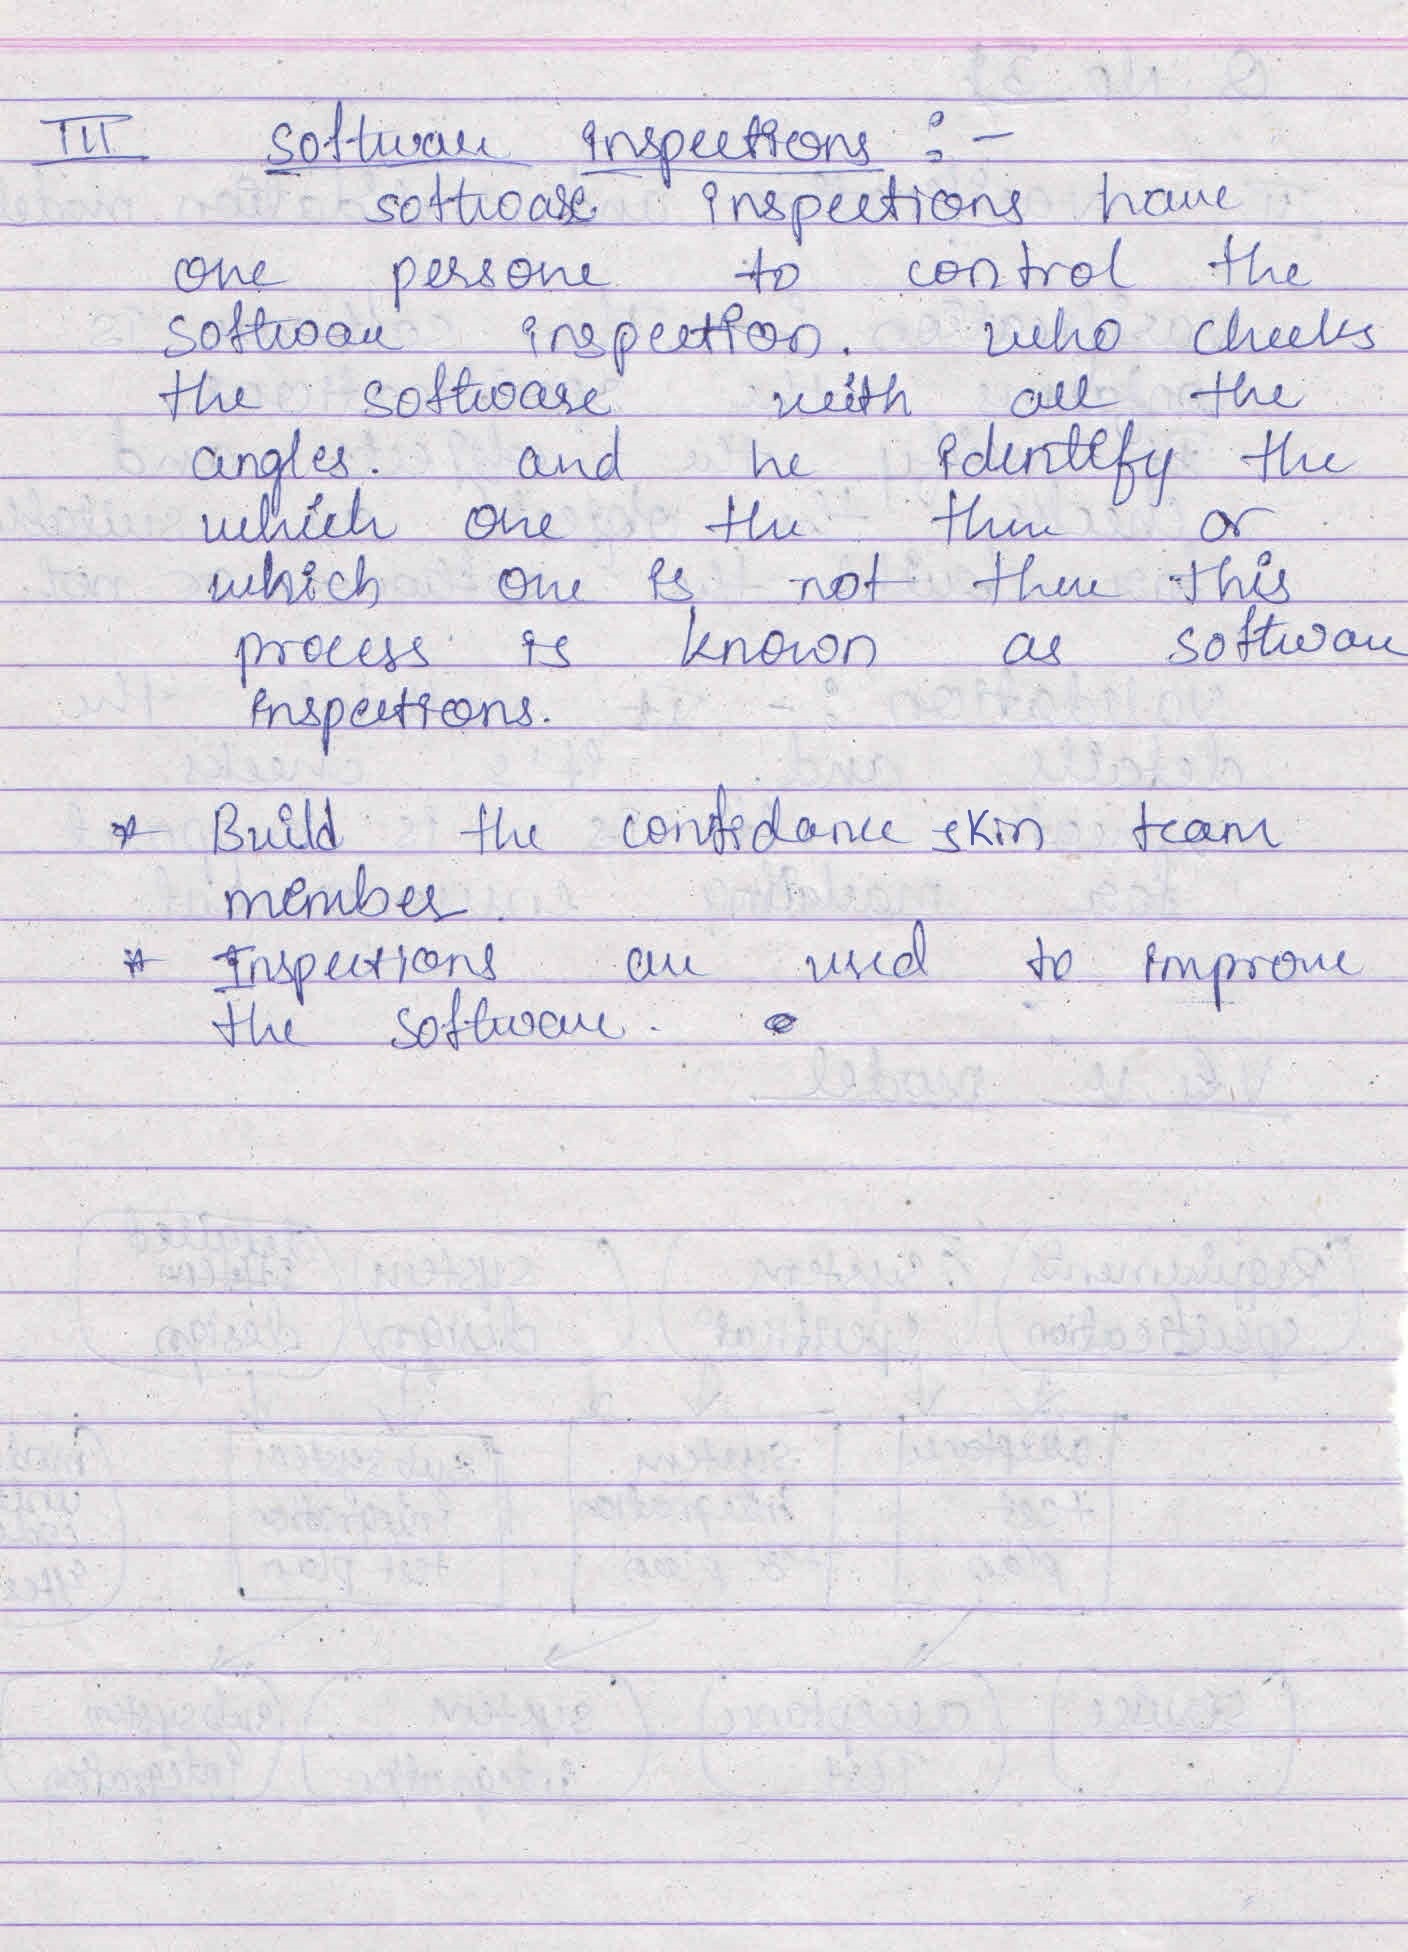 III software inspections :-
software inspections have
one persone to control the
software inspection. who checks
the software with all the
angles. and he identify the
which one the there or
which one is not there this
process is known as software
inspections.
* Build the confidance skin team
member.
* Inspections are used to improve
the software.